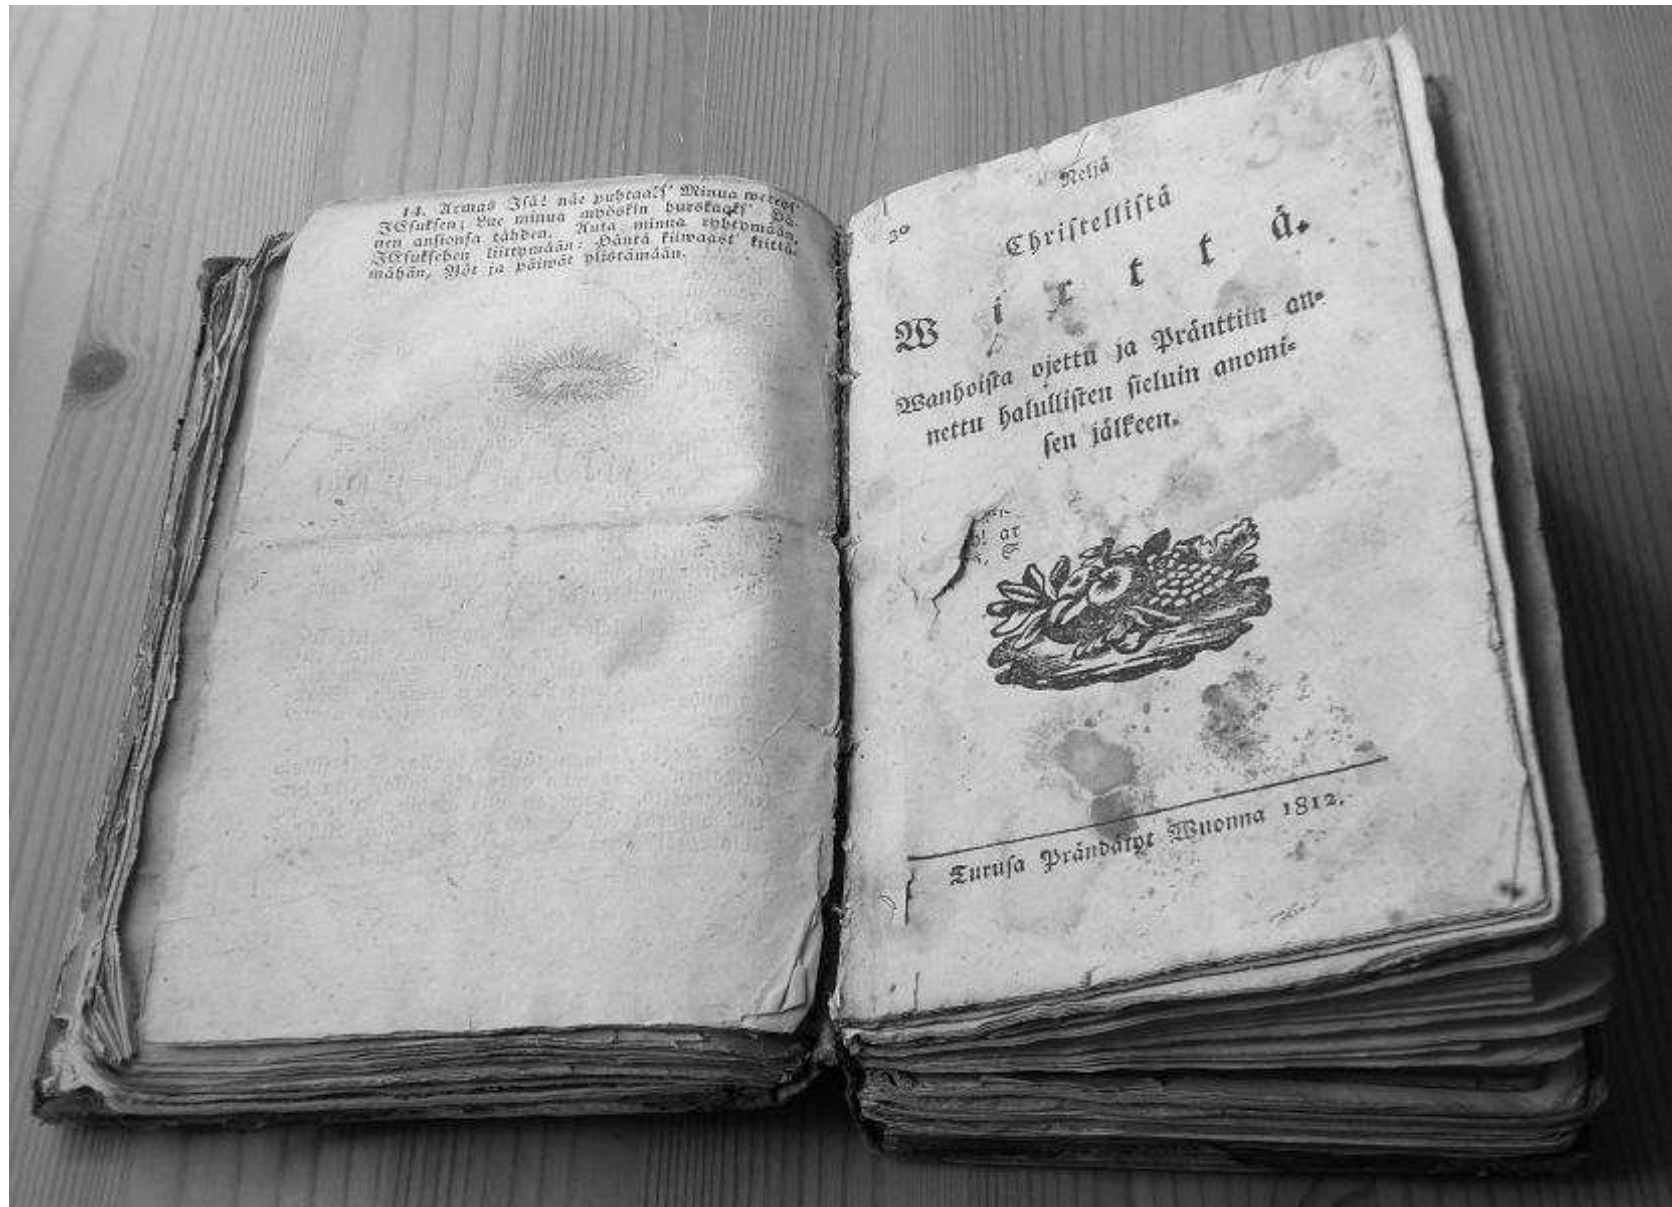 14. Armas Isä! näe puhtaaks' Minua werens'
JEsuksen; Lue minua myöskin hurskaaks' Hä-
nen ansionsa tähden. Auta minua ryhtymään,
JEsukseben liittymään: Häntä kilwaast' kiittä-
mähän, Yöt ja päiwät ylistämään.
30
Neljä
Christellistä
Wirttä.
Wanhoista ojettu ja Pränttiin an-
nettu halullisten sieluin anomi-
sen jälkeen.
Turusa Prändätyt Wuonna 1812.